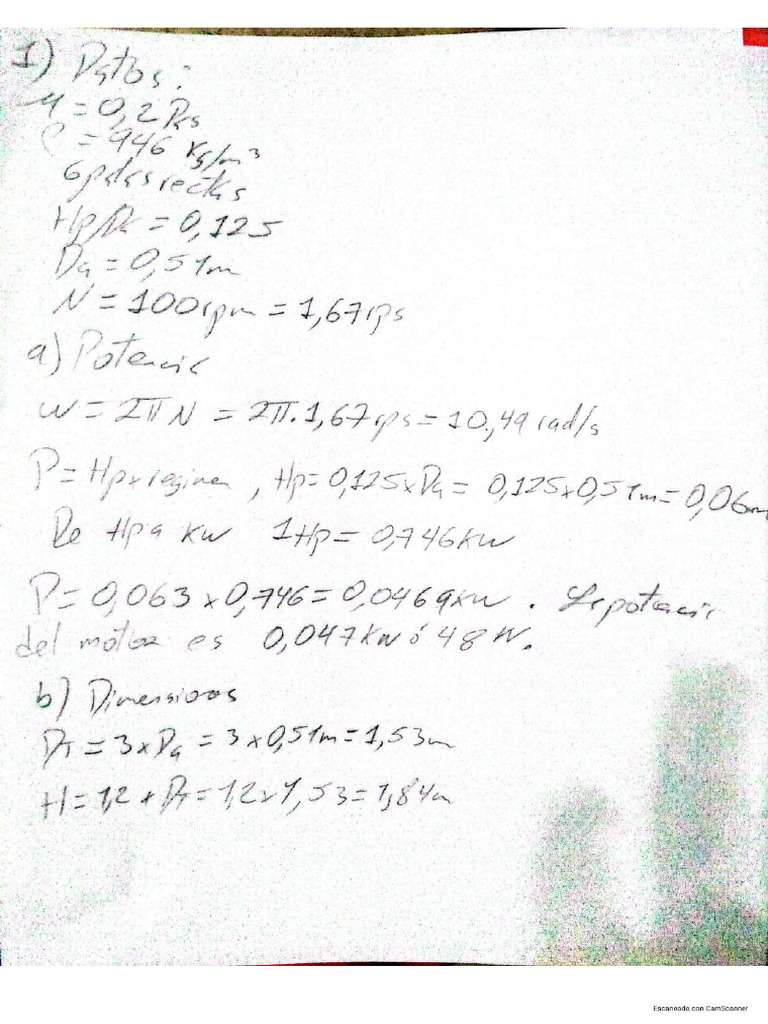 1) Datos:
μ = 0,2 Pas
ρ = 946 kg/m³
6 palas rectas
Hp/Da = 0,125
Da = 0,51m
N = 100rpm = 1,67rps
a) Potencia
w = 2πN = 2π.1,67rps = 10,49 rad/s
P = Hp x regimen, Hp = 0,125 x Da = 0,125 x 0,51m = 0,06m
De Hp a kw 1Hp = 0,746kw
P = 0,063 x 0,746 = 0,0469kw. La potencia
del motor es 0,047kw ó 48 W.
b) Dimensiones
DT = 3 x Da = 3 x 0,51m = 1,53m
H = 1,2 x DT = 1,2 x 1,53 = 1,84m
Escaneado con CamScanner